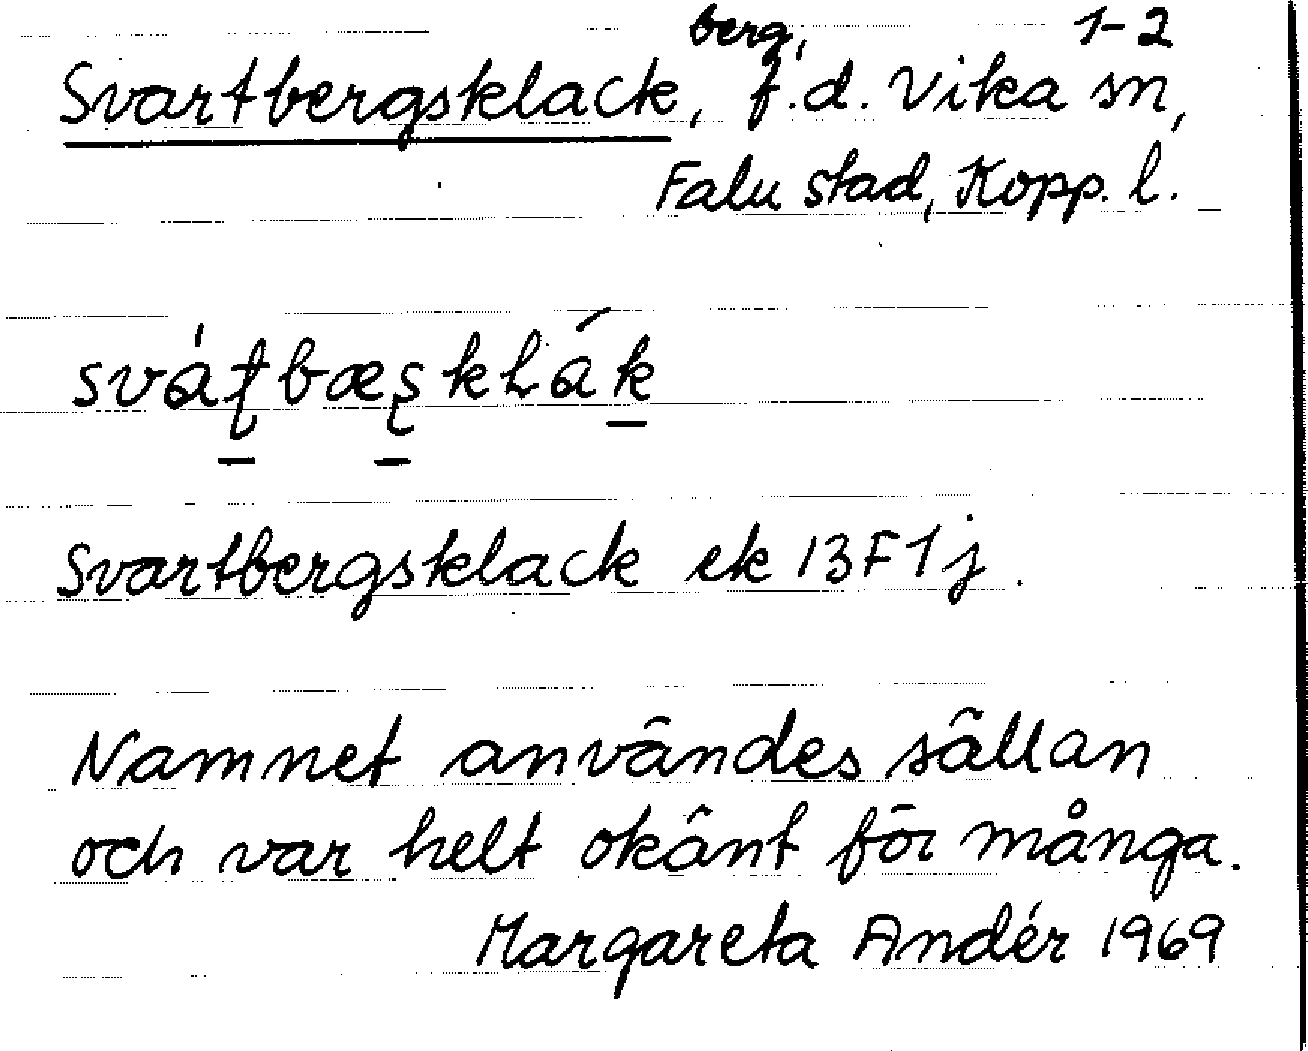 berg, 1-2
Svartbergsklack, f.d. Vika sn,
Falu stad, Kopp. l.
Svartbergsklack ek 13F1j.
Namnet användes sällan
och var helt okänt för många.
Margareta Andér 1969